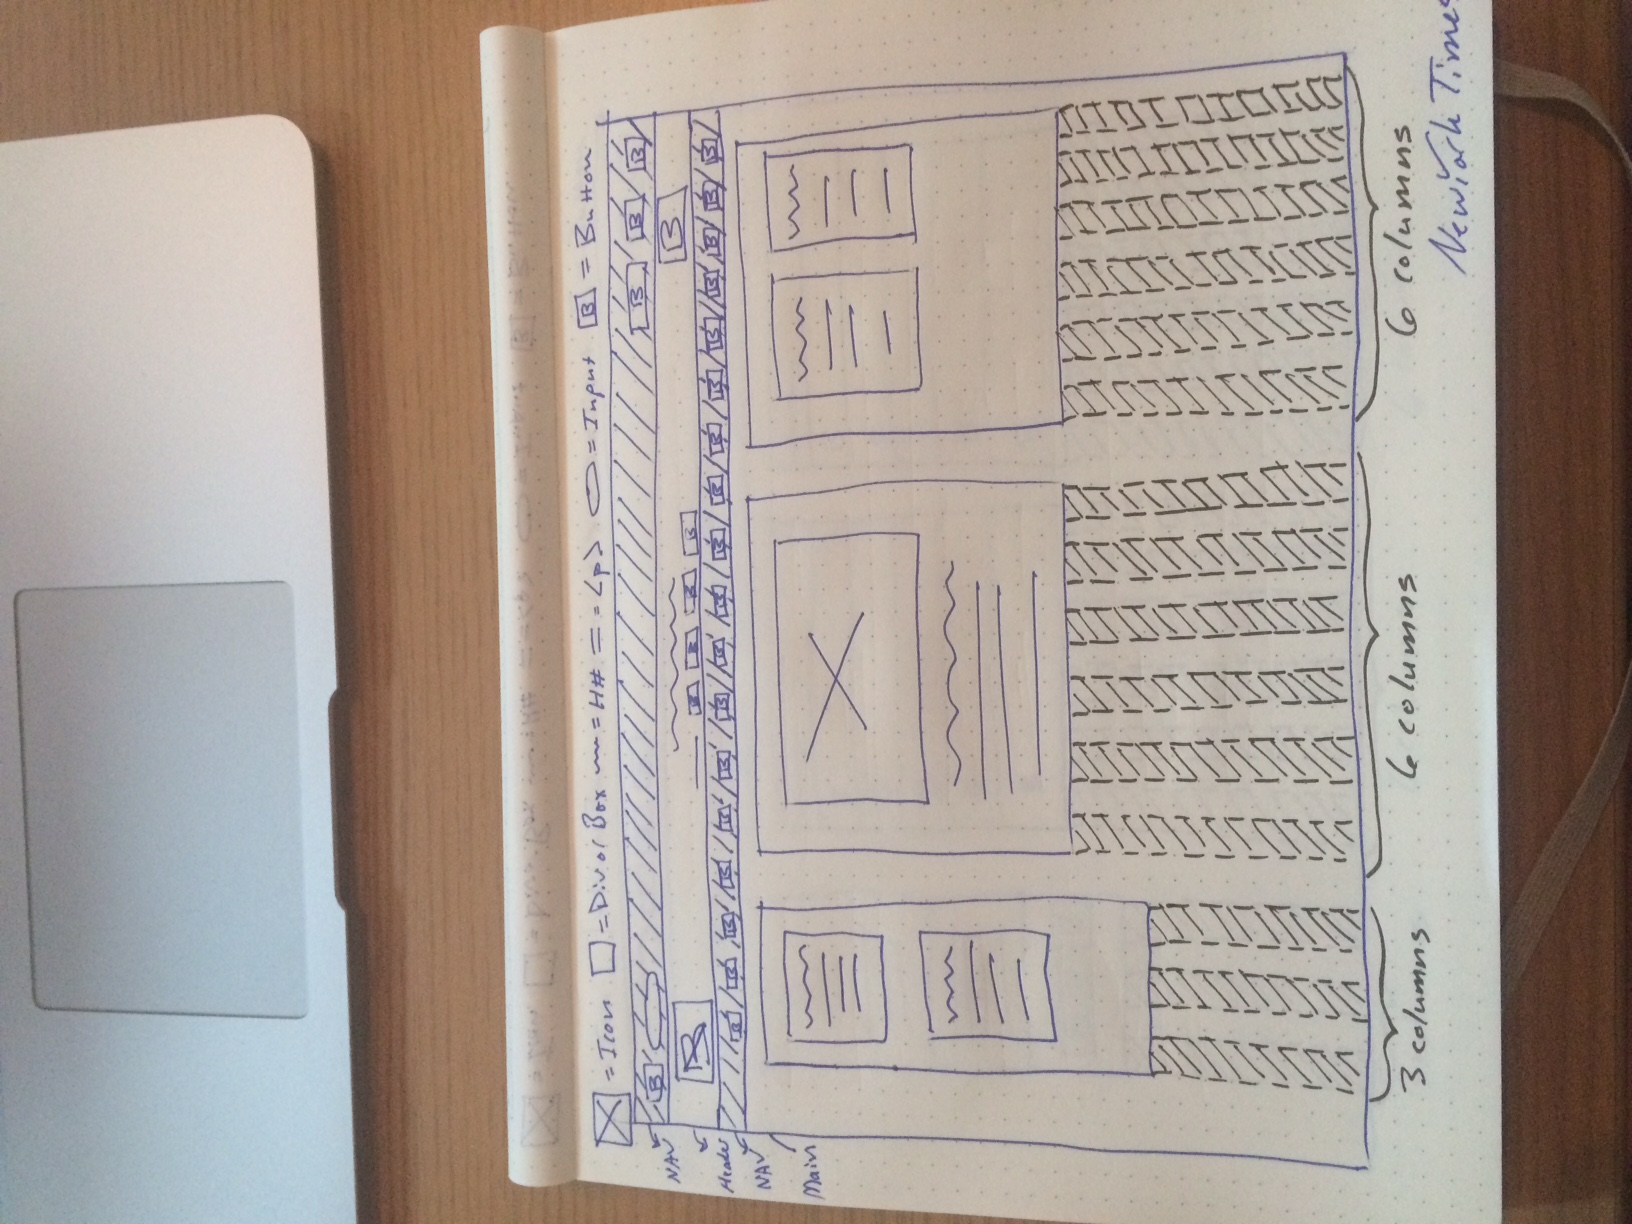 = Icon = Div or Box = H# = <p> = Input B = Button
NAV B B B B
Header B B B B B B
NAV B B B B B B B B B B B B B B B B B
Main
3 columns 6 columns 6 columns
New York Times